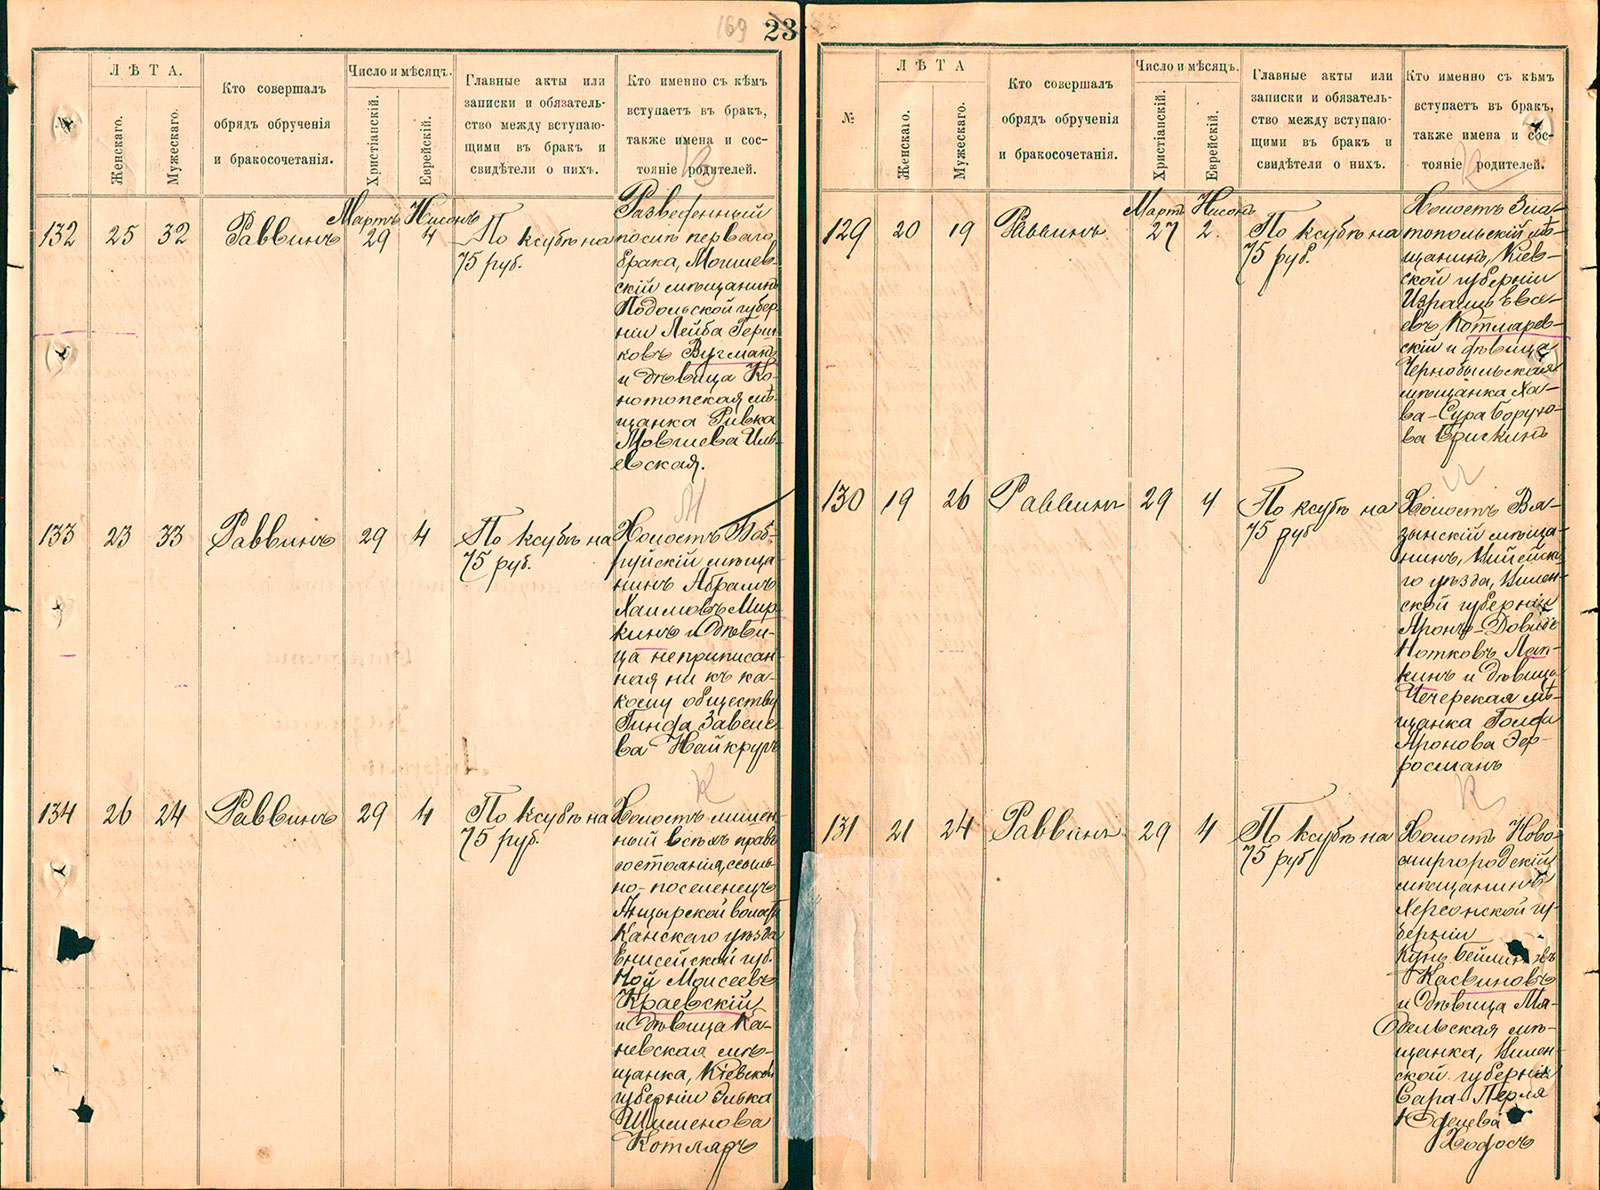 169 23
ЛѢТА.
Женскаго.
Мужескаго.
Кто совершалъ
обрядъ обрученія
и бракосочетанія.
Число и мѣсяцъ.
Христіанскій.
Еврейскій.
Главные акты или
записки и обязатель-
ство между вступаю-
щими въ бракъ и
свидѣтели о нихъ.
Кто именно съ кѣмъ
вступаетъ въ бракъ,
также имена и сос-
тояніе родителей.
В
132 25 32 Раввинъ
Мартъ Нисонъ
29 4
По ксубѣ на
75 руб.
Разведенный
послѣ перваго
брака, Могилев-
скій мѣщанинъ
Подольской губер-
ніи Лейба Герш-
ковъ Вугманъ
и дѣвица Ко-
нотопская мѣ-
щанка Ривка
Мовшева Иль-
евская.
М
133 23 33 Раввинъ 29 4
По ксубѣ на
75 руб.
Холостъ Боб-
руйскій мѣща-
нинъ Абрамъ
Хаимовъ Мир-
кинъ и дѣви-
ца неприписан-
ная ни къ ка-
кому обществу
Гинда Завеле-
ва Найкругъ
К
134 26 24 Раввинъ 29 4
По ксубѣ на
75 руб.
Холостъ лишен-
ный всѣхъ правъ
состоянія, ссыль-
но-поселенецъ
волости
Канскаго уѣзда
Енисейской губ.
Ной Моисеевъ
Краевскій
и дѣвица Ка-
невская мѣ-
щанка, Кіевской
губерніи Элька
Шименова
Котляръ
№
ЛѢТА
Женскаго.
Мужескаго.
Кто совершалъ
обрядъ обрученія
и бракосочетанія.
Число и мѣсяцъ.
Христіанскій.
Еврейскій.
Главные акты или
записки и обязатель-
ство между вступаю-
щими въ бракъ и
свидѣтели о нихъ.
Кто именно съ кѣмъ
вступаетъ въ бракъ,
также имена и сос-
тояніе родителей.
К
129 20 19 Раввинъ
Мартъ Нисонъ
27 2
По ксубѣ на
75 руб.
Холостъ Зла-
топольскій мѣ-
щанинъ, Кіев-
ской губерніи
Израиль Евсе-
евъ Котляров-
скій и дѣвица
Чернобыльская
мѣщанка Ха-
ва-Сура Борухо-
ва Брискинъ
Л
130 19 26 Раввинъ 29 4
По ксубѣ на
75 руб
Холостъ Вя-
зынскій мѣща-
нинъ, Вилейска-
го уѣзда, Вилен-
ской губерніи
Аронъ-Довидъ
Нотковъ Лап-
кинъ и дѣвица
Чечерская мѣ-
щанка Голда
Аронова Эф-
росманъ
К
131 21 24 Раввинъ 29 4
По ксубѣ на
75 руб
Холостъ Ново-
миргородскій
мѣщанинъ
Херсонской гу-
берніи
Касвиновъ
и дѣвица Мя-
дельская мѣ-
щанка, Вилен-
ской губерніи
Сара-Перля
Ходосъ